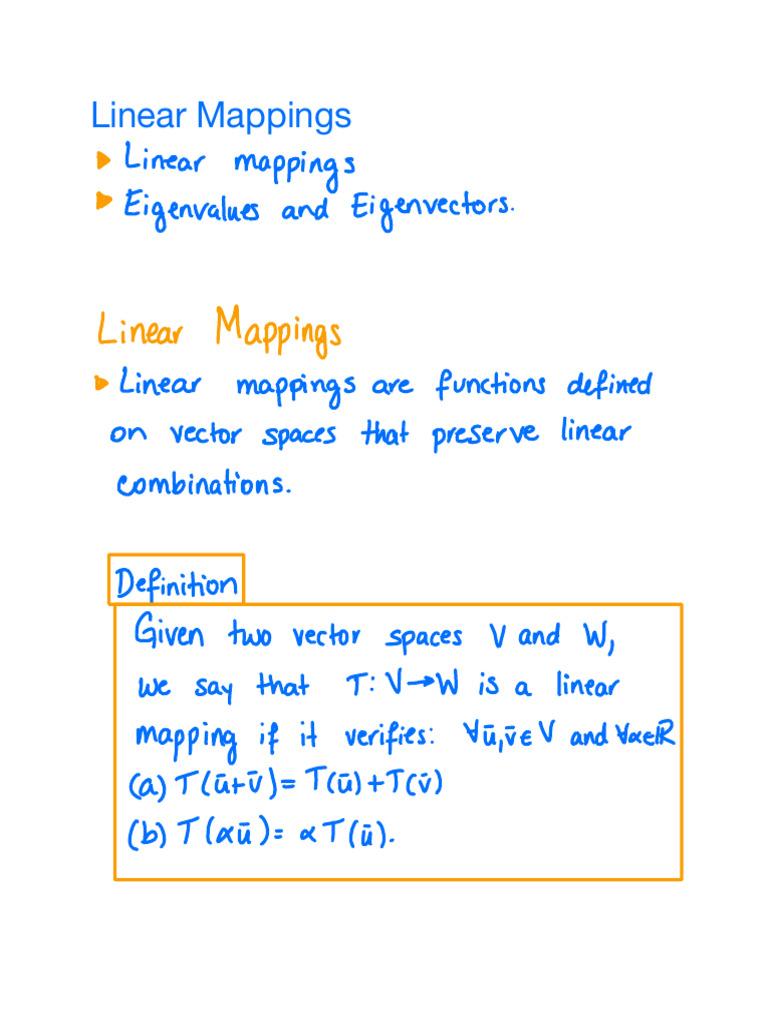 Linear Mappings
▸ Linear mappings
▸ Eigenvalues and Eigenvectors.
Linear Mappings
▸ Linear mappings are functions defined
on vector spaces that preserve linear
combinations.
Definition
Given two vector spaces V and W,
we say that T: V→W is a linear
mapping if it verifies: ∀ū,v̄∈V and ∀α∈ℝ
(a) T(ū+v̄)=T(ū)+T(v̄)
(b) T(αū)= αT(ū).